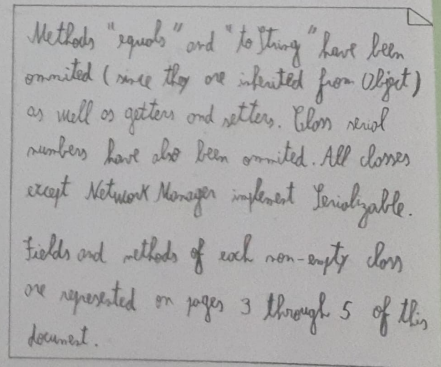 Methods "equals" and "toString" have been
ommited (since they are inherited from Object)
as well as getters and setters. Class serial
numbers have also been ommited. All classes
except Network Manager implement Serializable.
Fields and methods of each non-empty class
are represented on pages 3 through 5 of this
document.